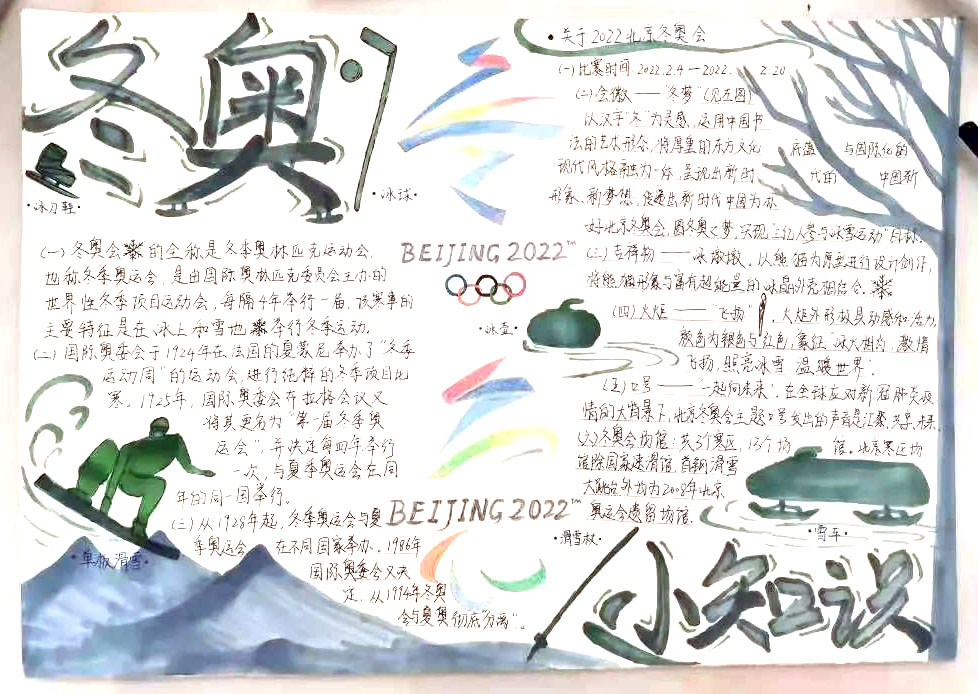 冬奥
冰刀鞋
冰球
(一)冬奥会的全称是冬季奥林匹克运动会,
也称冬季奥运会,是由国际奥林匹克委员会主办的
世界性冬季项目运动会,每隔4年举行一届,该赛事的
主要特征是在冰上和雪地举行冬季运动。
(二)国际奥委会于1924年在法国的夏蒙尼举办了“冬季
运动周”的运动会,进行的冬季项目比
赛。1925年,国际奥委会在布拉格会议又
将其更名为“第一届冬季奥
运会”,并决定每四年举行
一次,与夏季奥运会在同
年的同一国举行。
(三)从1928年起,冬季奥运会与夏
季奥运会 在不同国家举办。1986年
国际奥委会又决
定,从1994年冬奥
会与夏奥彻底“分离”。
单板滑雪
BEIJING 2022™
冰壶
BEIJING 2022™
滑雪杖
关于2022北京冬奥会
(一)比赛时间 2022.2.4—2022. 2.20
(二)会徽——“冬梦”(见左图)
以汉字“冬”为灵感,运用中国书
法的艺术形态,将厚重的东方文化 底蕴 与国际化的
现代风格融为一体,呈现出新时 代的 中国新
形象、新梦想,传递出新时代中国为办
好北京冬奥会,圆冬奥之梦,实现“三亿人参与冰雪运动”目标
(三)吉祥物——冰墩墩,以熊猫为原型进行设计创作,
将熊猫形象与富有超能量的冰晶外壳相结合。
(四)火炬——“飞扬”,火炬外形极具动感和活力,
颜色为银色与红色,象征“冰火相约,激情
飞扬,照亮冰雪 温暖世界”。
(五)口号——“一起向未来”,在全球应对新冠肺炎疫
情的大背景下,北京冬奥会主题口号发出的声音是汇聚、共享、未来
(六)冬奥会场馆:共3个赛区,13个场 馆。北京赛区场
馆除国家速滑馆,首钢滑雪
大跳台外均为2008年北京
奥运会遗留场馆。
雪车
小知识